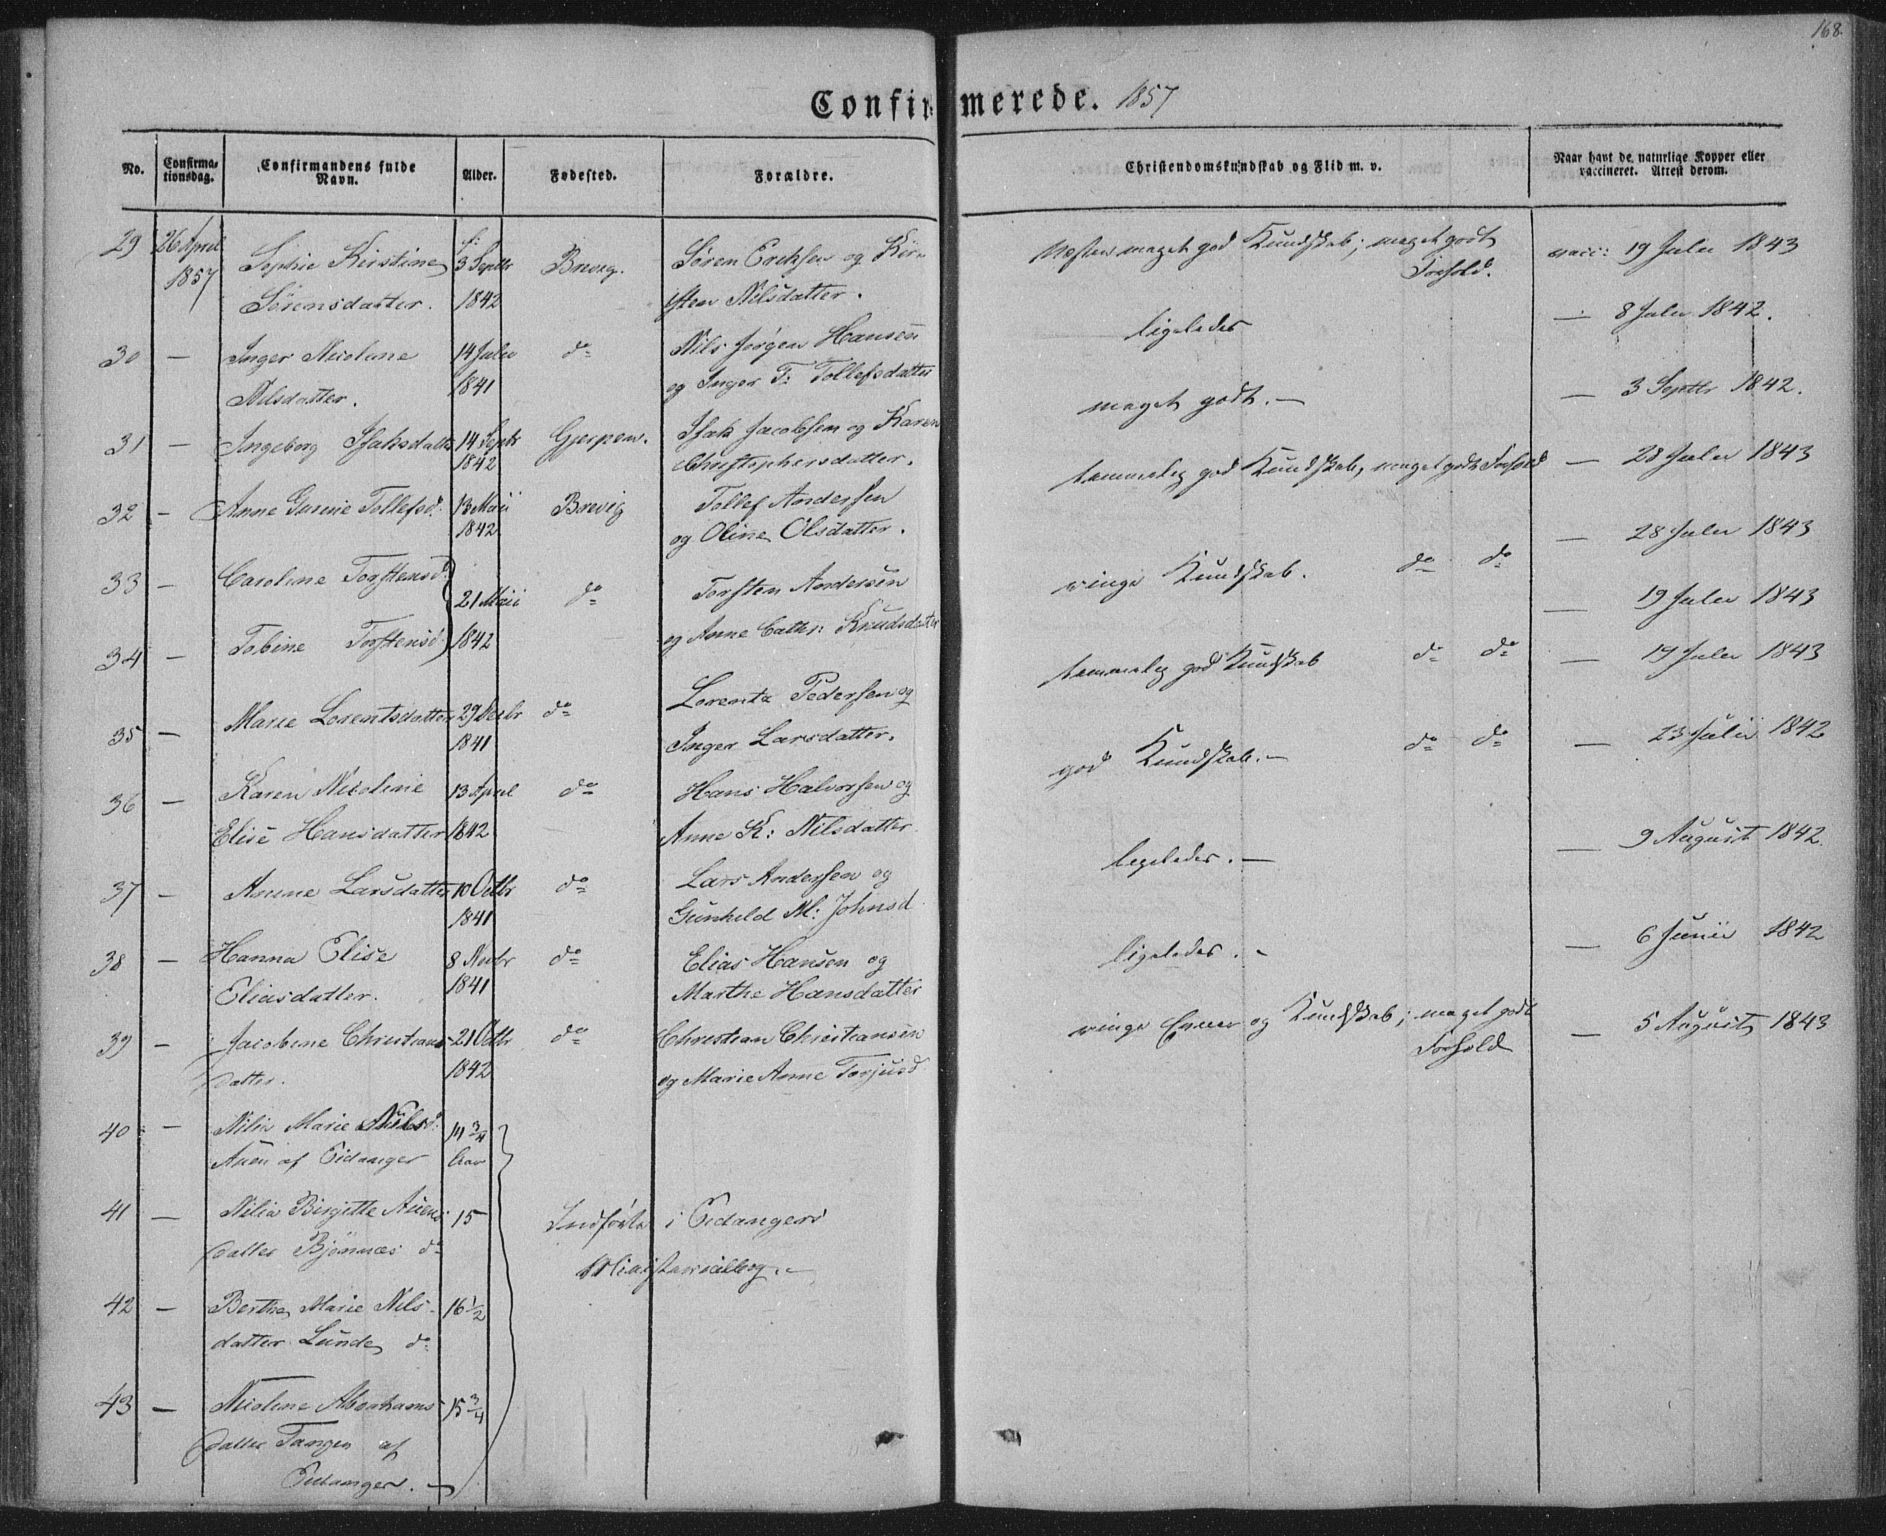 168.
Confirmerede. 1857
No.
Confirmationsdag.
Confirmandens fulde Navn.
Alder.
Fødested.
Forældre.
Christendomskundskab og Flid m. v.
Naar havt de naturlige Kopper eller vaccineret. Attest derom.
29 26 April Sophie Kirstine f: 3 Septbr Brevig. Søren Erichsen og Kir- Næsten meget god Kundskab; meget godt vacc: 19 Julii 1843
1857 Sørensdatter. 1842 sten Nilsdatter. Forhold.
30 — Inger Nicoline 14 Julii do Nils Jørgen Hansen ligeledes — 8 Julii 1842.
Nilsdatter. 1841 og Inger T: Tollefsdatter
31 — Ingeborg Isaksdatter 14 Septbr Gjerpen. Isak Jacobsen og Karen meget godt. — — 3 Septbr 1842.
1842 Christophersdatter.
32 — Anne Gurine Tollefsd: 13 Maii Brevig Tollef Andersen temmelig god Kundskab, meget godt Forhold — 28 Julii 1843
1842. og Oline Olsdatter.
33 — Caroline Torstensd: 21 Maii do Torsten Andersen ringe Kundskab. do do — 28 Julii 1843
— 19 Julii 1843
34 — Tobine Torstensd: 1842 og Anne Cathr: Knudsdatter temmelig god Kundskab do do — 19 Julii 1843
35 — Marie Lorentsdatter 29 Decbr do Lorentz Pedersen og god Kundskab. — do do — 23 Julii 1842
1841 Inger Larsdatter.
36 — Karen Nicoline 13 April do Hans Halvorsen og ligeledes. — — 9 August 1842.
Elise Hansdatter 1842. Anne K: Nilsdatter
37 — Anne Larsdatter 10 Octbr do Lars Andersen og ligeledes. — — 6 Junii 1842
1841 Gunhild M: Johnsd
38 — Hanna Elise 8 Novbr do Elias Hansen og ringe Evner og Kundskab; meget godt — 5 August 1843
Eliasdatter. 1841 Marthe Hansdatter Forhold
39 — Jacobine Christians- 21 Octbr do Christian Christiansen
datter. 1842 og Marie Anne Torjusd
40 — Nilia Marie Nilsd: 14 3/4
Auen af Eidanger Aar
41 — Nilia Birgitte Auens- 15 Indførte i Eidangers
datter Bjønnæs do Ministerialbog. —
42 — Berthe Marie Nils- 16 1/2
datter Lunde do
43 — Nicoline Abrahams- 15 3/4
datter Tangen af
Eidanger. —